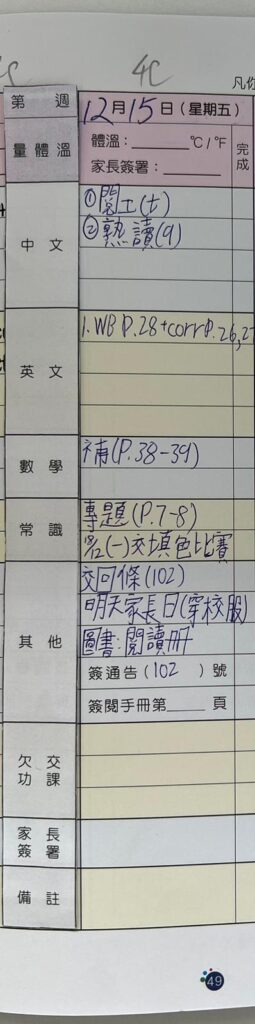 4C
凡你
第 週
12月15日(星期五)
量體溫
體溫：______℃/℉
家長簽署：______
完成
中文
①閱工(七)
②熟讀(9)
英文
1. WB P.28+corr P.26,27
數學
補(P.38-39)
常識
專題(P.7-8)
18/12(一)交填色比賽
其他
交回條(102)
明天家長日(穿校服)
圖書:閱讀册
簽通告(102 )號
簽閱手冊第____頁
欠交功課
家長簽署
備註
49